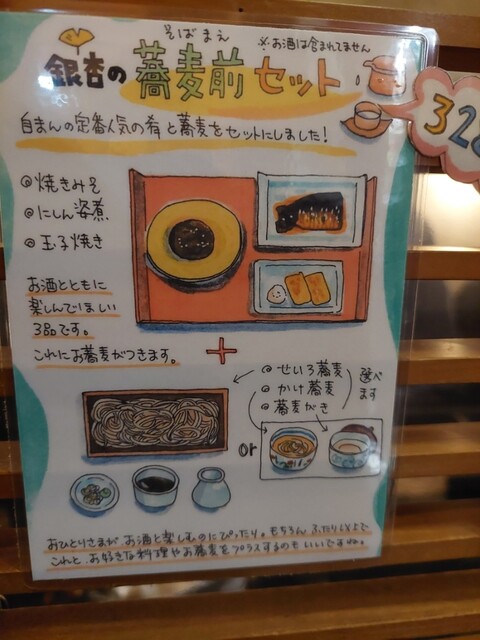 そばまえ
※お酒は含まれてません
銀杏の蕎麦前セット
自まんの定番人気の肴と蕎麦をセットにしました!
328
◎焼きみそ
◎にしん姿煮
◎玉子焼き
お酒とともに
楽しんでほしい
3品です。
これにお蕎麦がつきます。
+
◎せいろ蕎麦
◎かけ蕎麦
◎蕎麦がき
選べ
ます
or
おひとりさまが、お酒と楽しむのにぴったり。もちろん ふたり以上で
これと、お好きな料理やお蕎麦をプラスするのもいいですね。